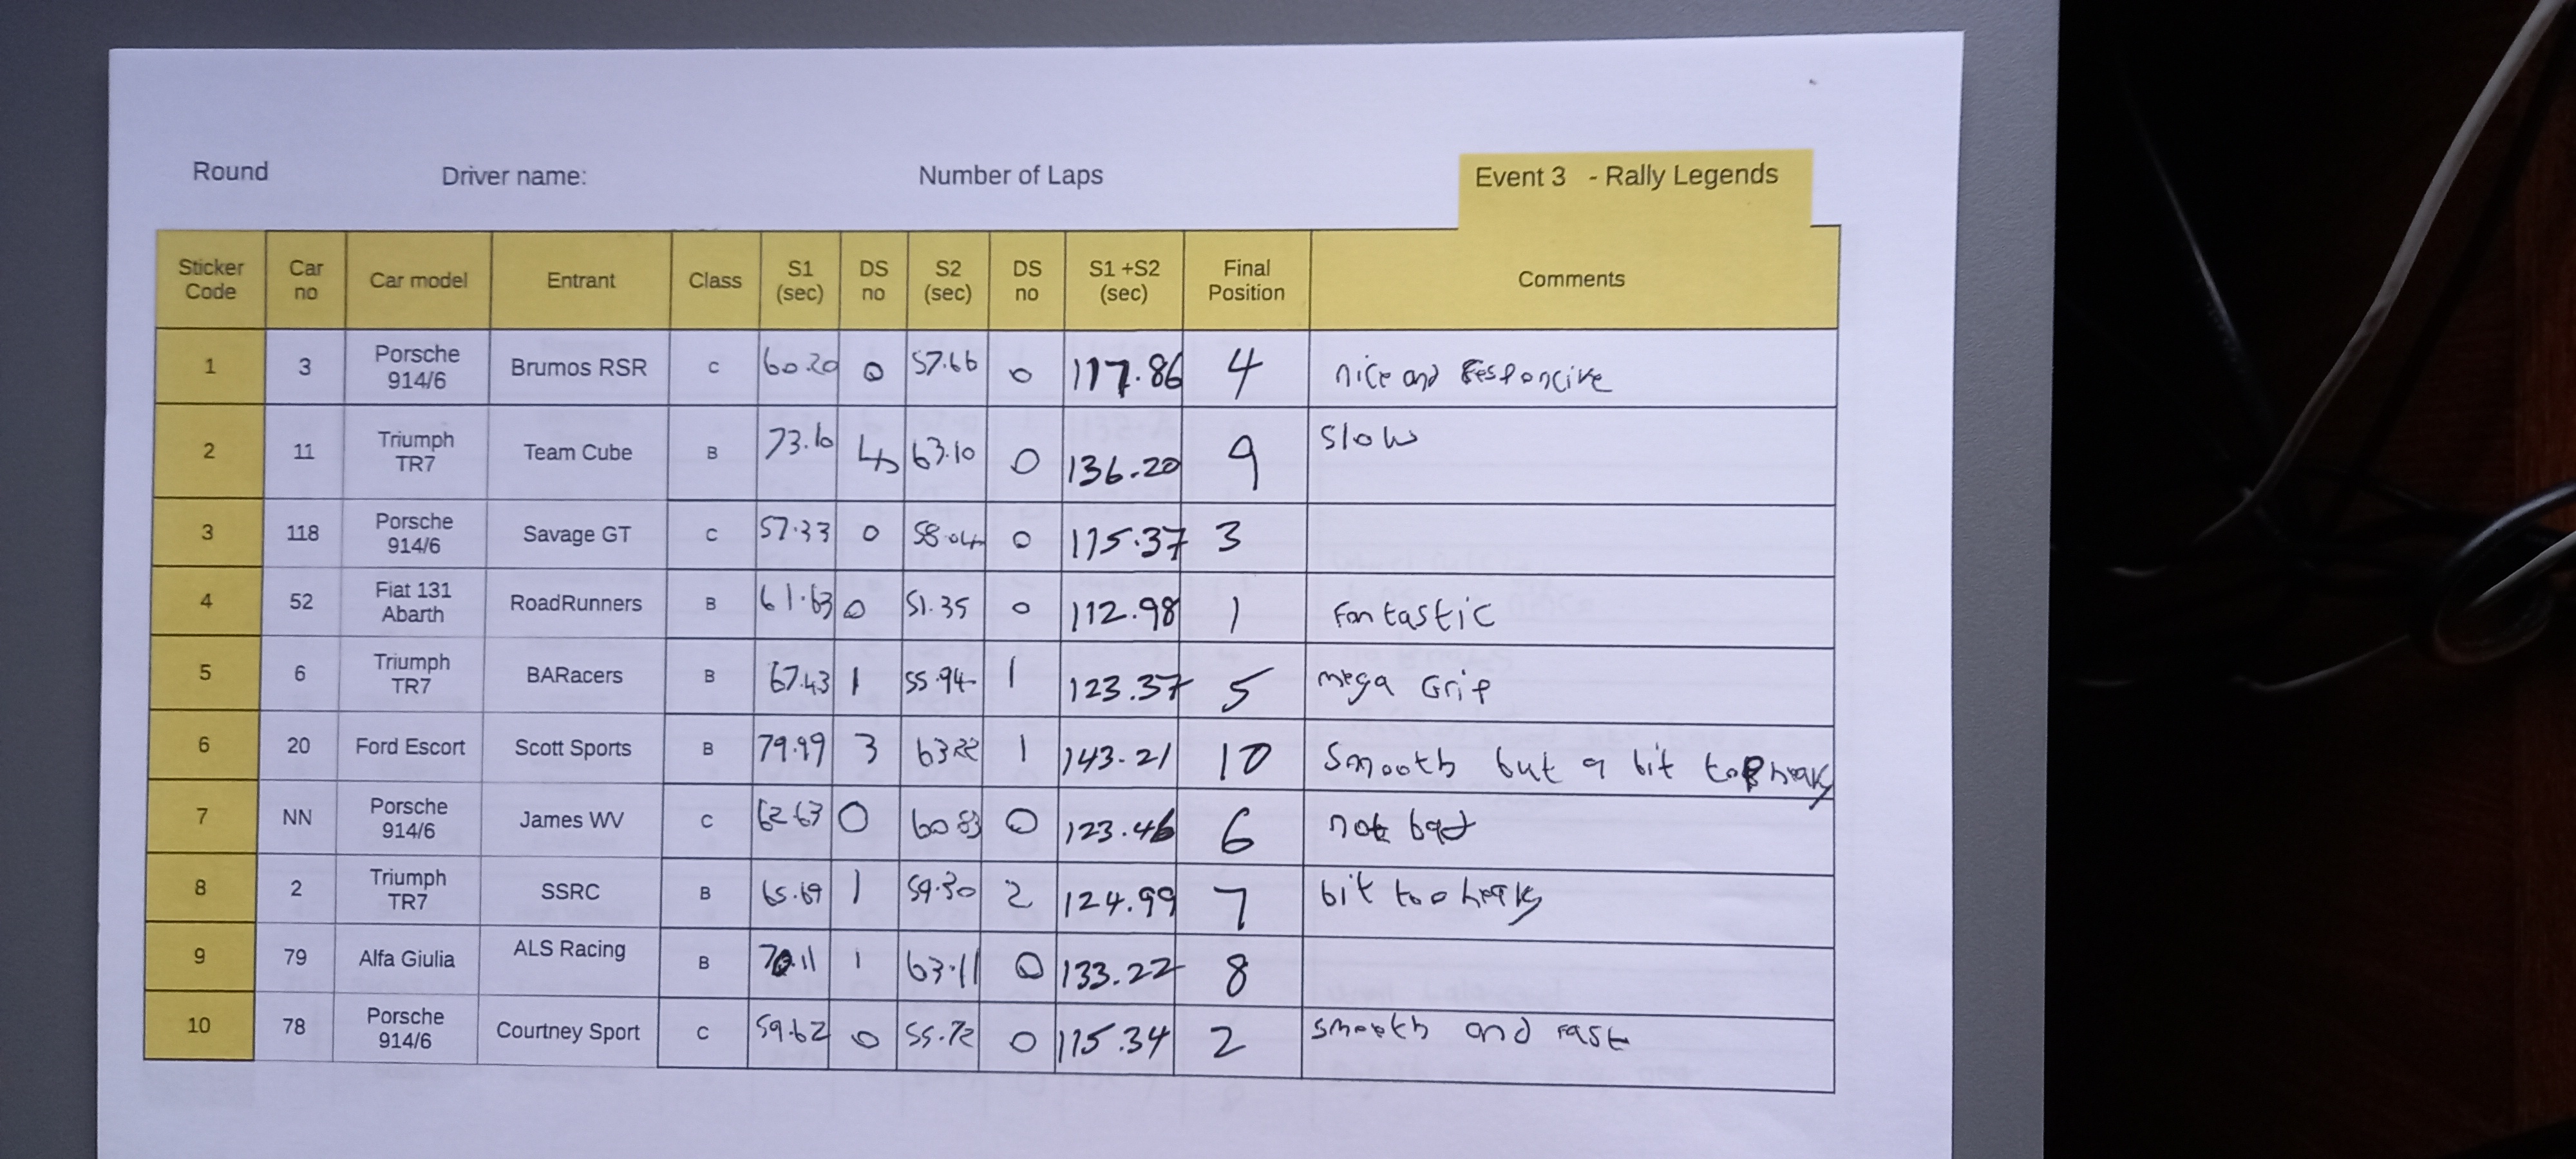 Round Driver name: Number of Laps Event 3 - Rally Legends
Sticker Code Car no Car model Entrant Class S1 (sec) DS no S2 (sec) DS no S1 +S2 (sec) Final Position Comments
1 3 Porsche 914/6 Brumos RSR C 60.20 0 57.66 0 117.86 4 nice and responcive
2 11 Triumph TR7 Team Cube B 73.10 4 63.10 0 136.20 9 slow
3 118 Porsche 914/6 Savage GT C 57.33 0 58.04 0 115.37 3
4 52 Fiat 131 Abarth RoadRunners B 61.63 0 51.35 0 112.98 1 Fantastic
5 6 Triumph TR7 BARacers B 67.43 1 55.94 1 123.37 5 mega Grip
6 20 Ford Escort Scott Sports B 79.99 3 63.22 1 143.21 10 Smooth but a bit to
7 NN Porsche 914/6 James WV C 62.63 0 60.83 0 123.46 6 not bad
8 2 Triumph TR7 SSRC B 65.69 1 59.30 2 124.99 7 bit too heavy
9 79 Alfa Giulia ALS Racing B 70.11 1 63.11 0 133.22 8
10 78 Porsche 914/6 Courtney Sport C 59.62 0 55.72 0 115.34 2 smooth and fast